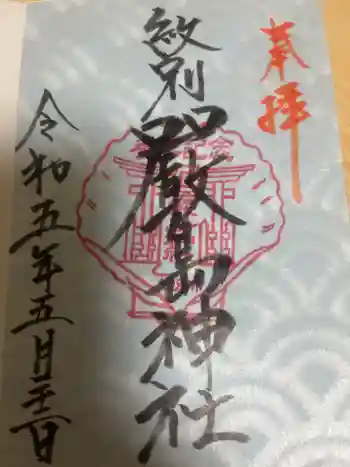 奉拝
紋別
厳島神社
令和五年五月二十三日